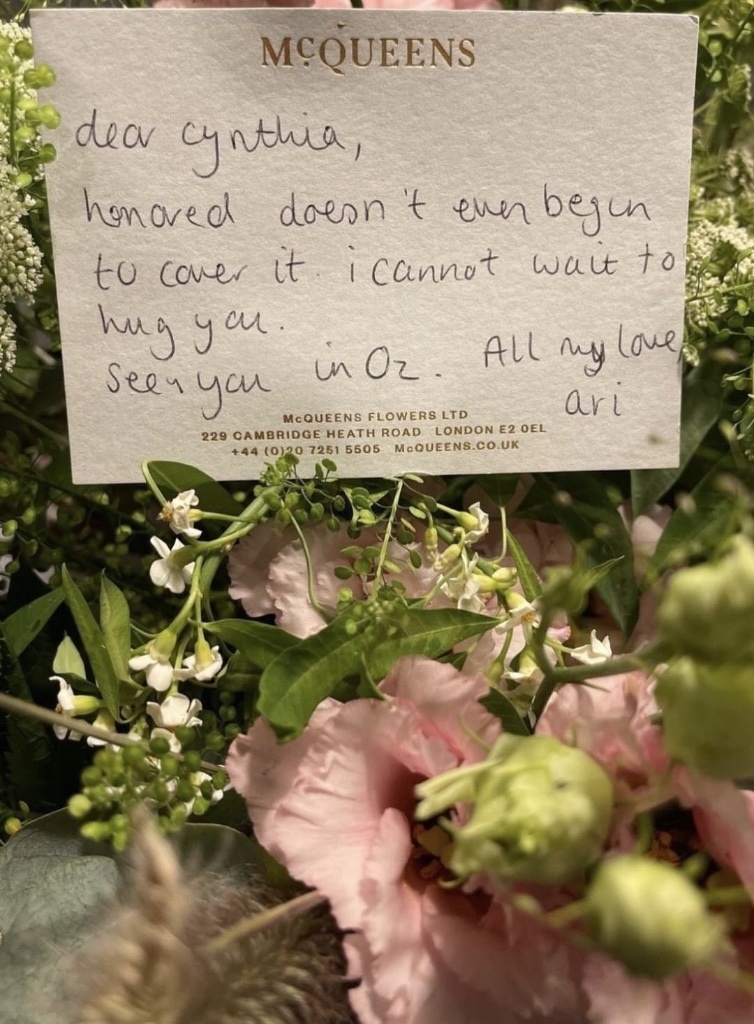 McQUEENS
dear cynthia,
honored doesn't even begin
to cover it. i cannot wait to
hug you.
see you in Oz. All my love,
ari
McQUEENS FLOWERS LTD
229 CAMBRIDGE HEATH ROAD LONDON E2 0EL
+44 (0)20 7251 5505 McQUEENS.CO.UK